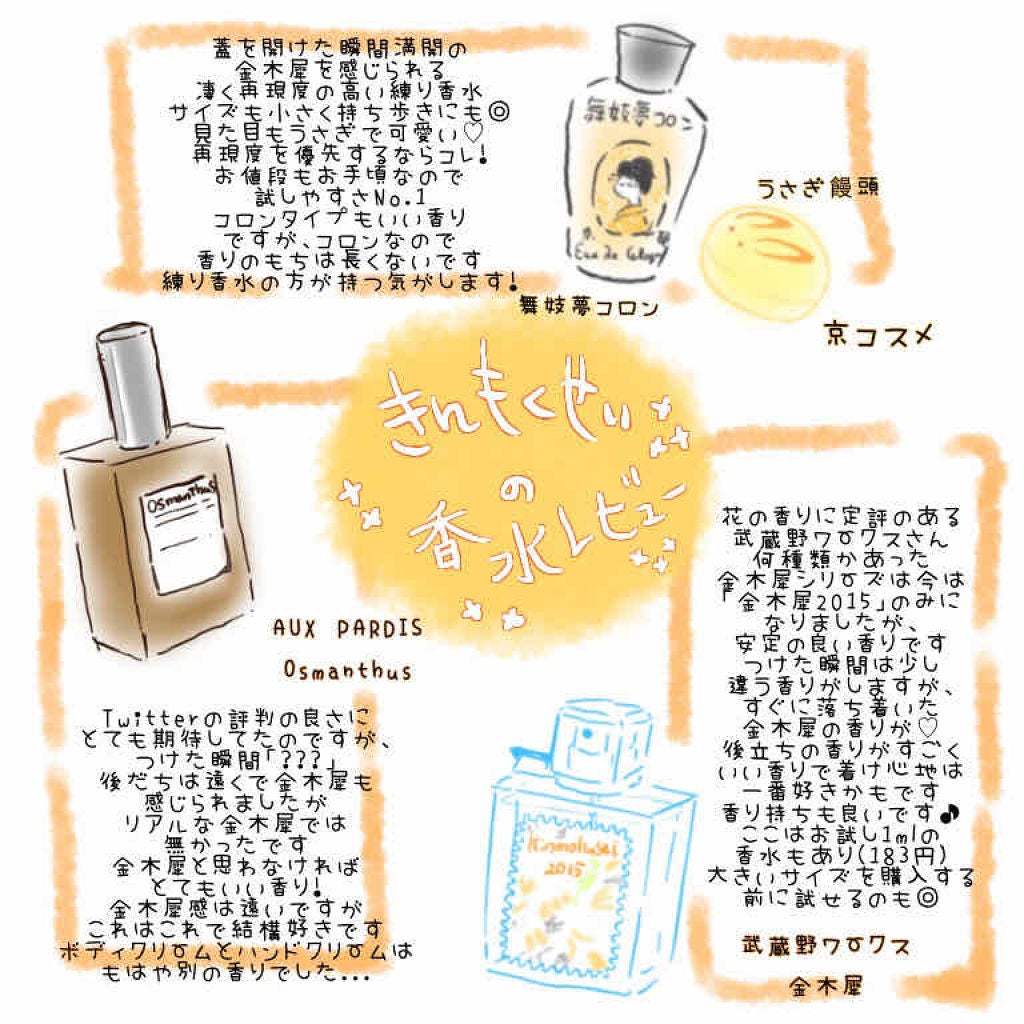 蓋を開けた瞬間満開の
金木犀を感じられる
凄く再現度の高い練り香水
サイズも小さく持ち歩きにも◎
見た目もうさぎで可愛い♡
再現度を優先するならコレ!
お値段もお手頃なので
試しやすさNo.1
コロンタイプもいい香り
ですが、コロンなので
香りのもちは長くないです
練り香水の方が持つ気がします!
舞妓夢コロン
Eau de Cologne
うさぎ饅頭
舞妓夢コロン
京コスメ
きんもくせい
の
香水レビュー
Osmanthus
AUX PARDIS
Osmanthus
Twitterの評判の良さに
とても期待してたのですが、
つけた瞬間「???」
後だちは遠くで金木犀も
感じられましたが
リアルな金木犀では
無かったです
金木犀と思わなければ
とてもいい香り!
金木犀感は遠いですが
これはこれで結構好きです
ボディクリームとハンドクリームは
もはや別の香りでした...
花の香りに定評のある
武蔵野ワークスさん
何種類かあった
金木犀シリーズは今は
「金木犀2015」のみに
なりましたが、
安定の良い香りです
つけた瞬間は少し
違う香りがしますが、
すぐに落ち着いた
金木犀の香りが♡
後立ちの香りがすごく
いい香りで着け心地は
一番好きかもです
香り持ちも良いです♪
ここはお試し1mlの
香水もあり(183円)
大きいサイズを購入する
前に試せるのも◎
Kinmokusei
2015
武蔵野ワークス
金木犀